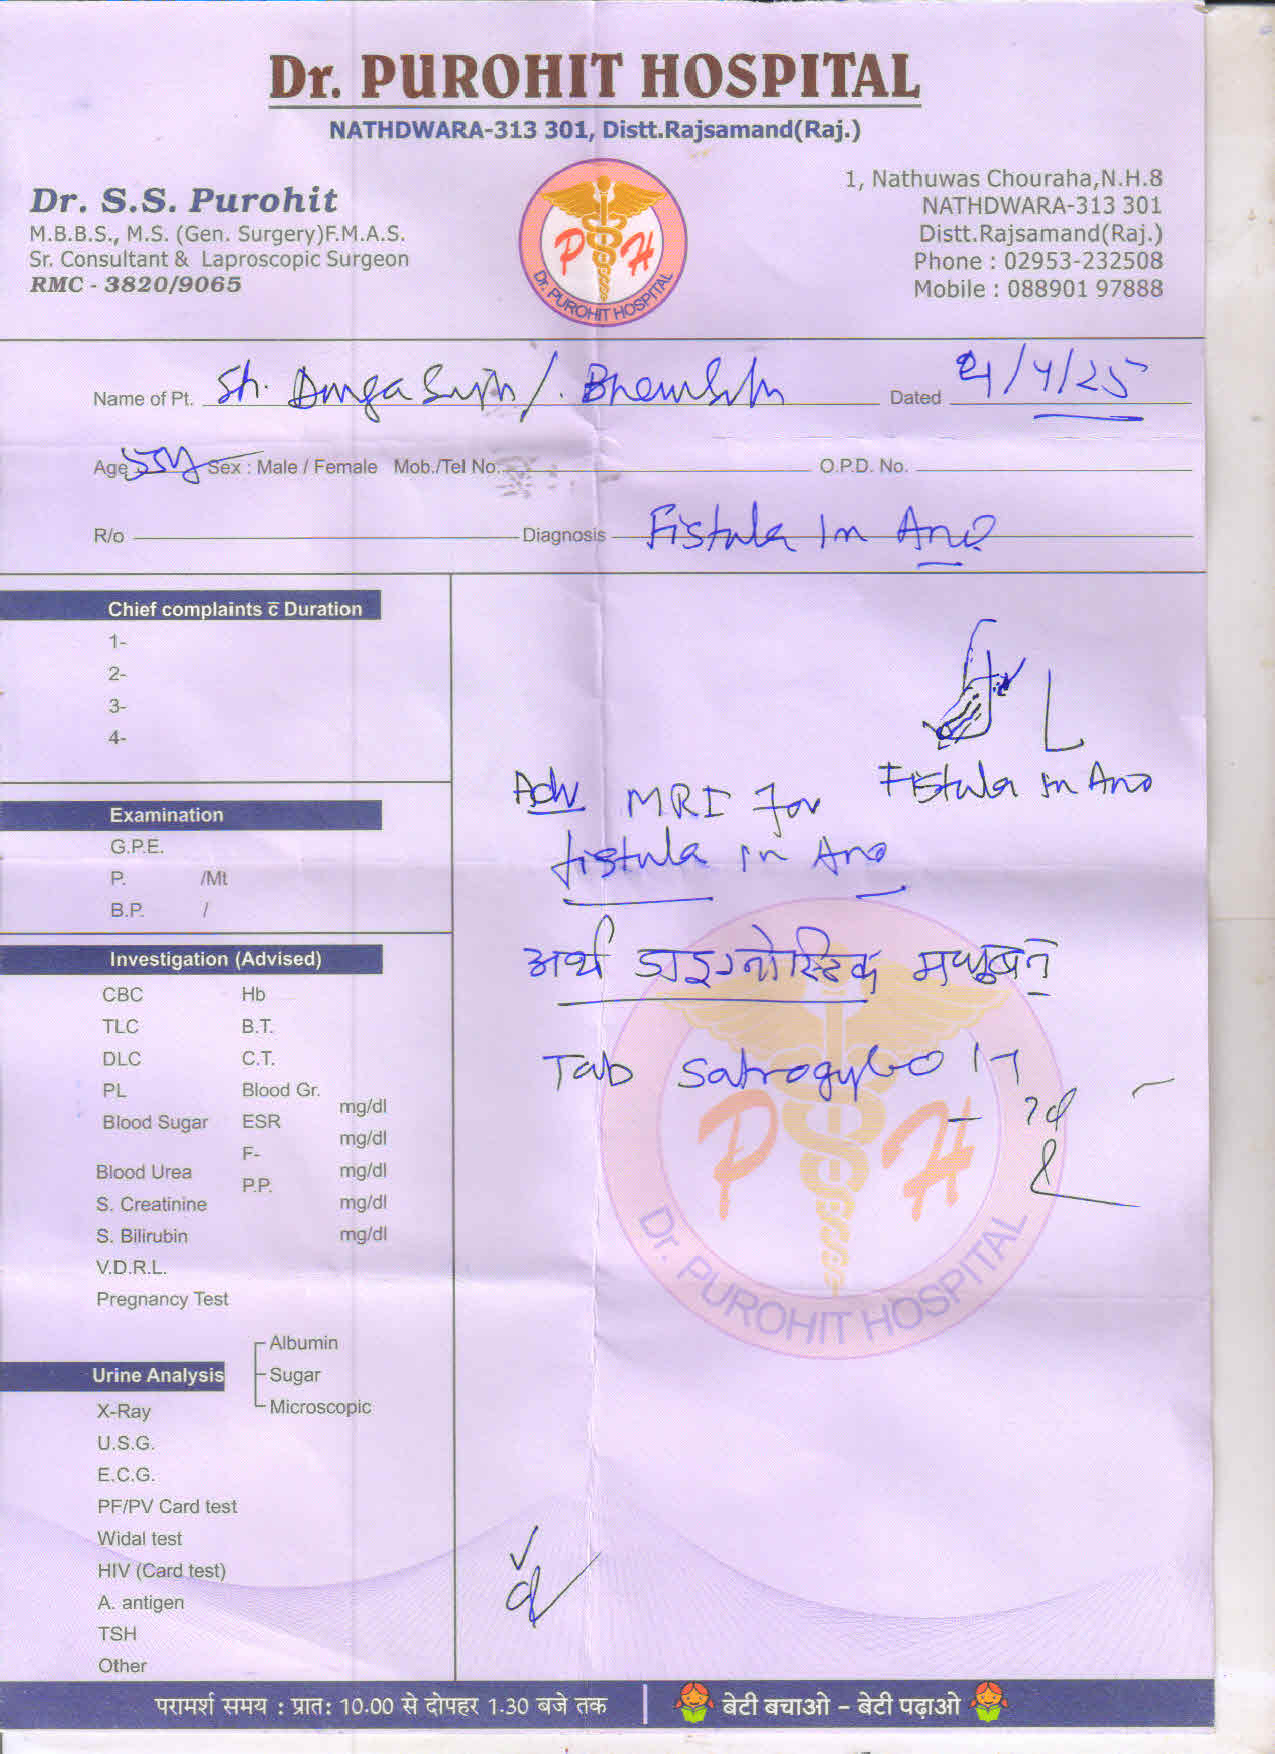 Dr. PUROHIT HOSPITAL
NATHDWARA-313 301, Distt.Rajsamand(Raj.)
Dr. S.S. Purohit
M.B.B.S., M.S. (Gen. Surgery)F.M.A.S.
Sr. Consultant & Laproscopic Surgeon
RMC - 3820/9065
P H
Dr. PUROHIT HOSPITAL
1, Nathuwas Chouraha,N.H.8
NATHDWARA-313 301
Distt.Rajsamand(Raj.)
Phone : 02953-232508
Mobile : 088901 97888
Name of Pt. Sh. Durga / Dated /4/25
Age Sex : Male / Female Mob./Tel No. O.P.D. No.
R/o Diagnosis Fistula In Ano
Chief complaints c̄ Duration
1-
2-
3-
4-
L
Fistula in Ano
Adv MRI for
fistula in Ano
अर्थ डाइग्नोस्टिक
Tab
Examination
G.P.E.
P. /Mt
B.P. /
Investigation (Advised)
CBC Hb
TLC B.T.
DLC C.T.
PL Blood Gr.
mg/dl
Blood Sugar ESR
F- mg/dl
Blood Urea mg/dl
P.P.
S. Creatinine mg/dl
S. Bilirubin mg/dl
V.D.R.L.
Pregnancy Test
P H
Dr. PUROHIT HOSPITAL
Albumin
Urine Analysis Sugar
Microscopic
X-Ray
U.S.G.
E.C.G.
PF/PV Card test
Widal test
HIV (Card test)
A. antigen
TSH
Other
परामर्श समय : प्रात: 10.00 से दोपहर 1.30 बजे तक | बेटी बचाओ – बेटी पढ़ाओ